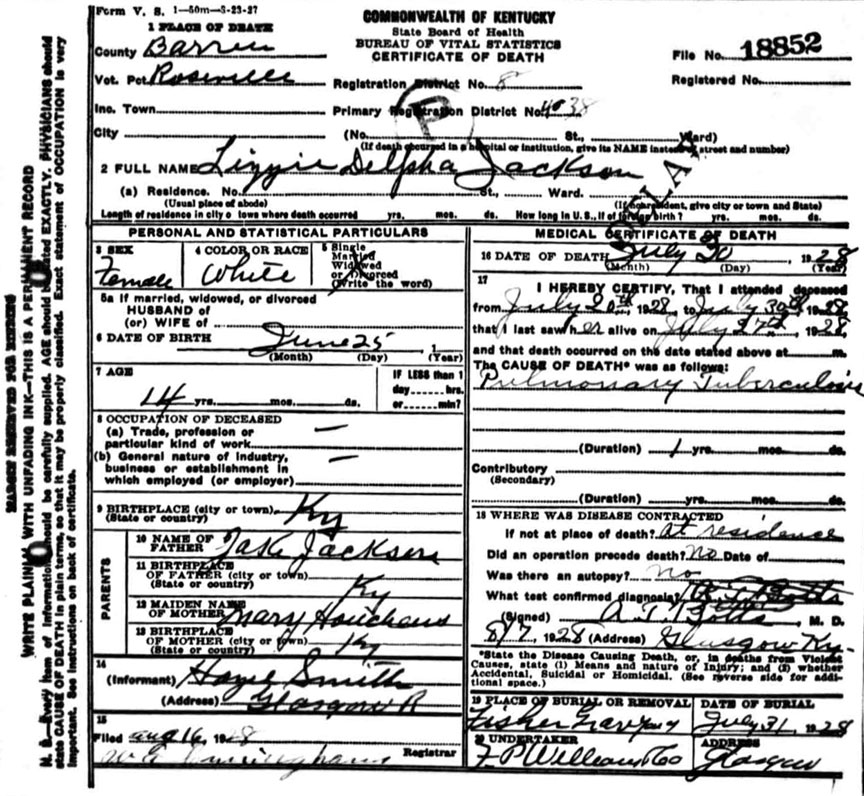 Form V. S. 1—50m—3-23-27
COMMONWEALTH OF KENTUCKY
State Board of Health
BUREAU OF VITAL STATISTICS
CERTIFICATE OF DEATH
File No. 18852
Registered No.
1 PLACE OF DEATH
County Barren
Vot. Pct. Roseville
Registration District No. 8
Inc. Town
Primary Registration District No. 4038
City (No. St., Ward)
(If death occurred in a hospital or institution, give its NAME instead of street and number)
P
2 FULL NAME Lizzie Delpha Jackson
(a) Residence. No. St., Ward.
(Usual place of abode) (If nonresident, give city or town and State)
Length of residence in city or town where death occurred yrs. mos. ds. How long in U.S., if of foreign birth? yrs. mos. ds.
PERSONAL AND STATISTICAL PARTICULARS
3 SEX Female
4 COLOR OR RACE White
5 Single Married Widowed or Divorced (Write the word)
5a If married, widowed, or divorced
HUSBAND of
(or) WIFE of
6 DATE OF BIRTH June 25 1
(Month) (Day) (Year)
7 AGE 14 yrs. mos. ds.
IF LESS than 1 day hrs. or min?
8 OCCUPATION OF DECEASED
(a) Trade, profession or
particular kind of work —
(b) General nature of industry,
business or establishment in
which employed (or employer) —
9 BIRTHPLACE (city or town) Ky
(State or country)
PARENTS
10 NAME OF FATHER Jake Jackson
11 BIRTHPLACE OF FATHER (city or town) Ky
(State or country)
12 MAIDEN NAME OF MOTHER Mary Houchens
13 BIRTHPLACE OF MOTHER (city or town) Ky
(State or country)
14 (Informant) Smith
(Address) Glasgow R
15 Filed Aug 16, 1928
Registrar
MEDICAL CERTIFICATE OF DEATH
16 DATE OF DEATH July 30, 1928
(Month) (Day) (Year)
17 I HEREBY CERTIFY, That I attended deceased
from July 20th, 1928, to July 30th, 1928,
that I last saw her alive on July 27th, 1928,
and that death occurred on the date stated above at m.
The CAUSE OF DEATH* was as follows:
Pulmonary Tuberculosis
(Duration) 1 yrs. mos. ds.
Contributory
(Secondary)
(Duration) yrs. mos. ds.
18 WHERE WAS DISEASE CONTRACTED
If not at place of death? At residence
Did an operation precede death? No Date of
Was there an autopsy? no
What test confirmed diagnosis? A. T. Botts
(Signed) A. T. Botts, M. D.
8/7, 1928 (Address) Glasgow Ky.
*State the Disease Causing Death, or, in deaths from Violent
Causes, state (1) Means and nature of Injury; and (2) whether
Accidental, Suicidal or Homicidal. (See reverse side for addi-
tional space.)
19 PLACE OF BURIAL OR REMOVAL
DATE OF BURIAL
July 31, 1928
20 UNDERTAKER
ADDRESS
Glasgow
MARGIN RESERVED FOR BINDING
WRITE PLAINLY WITH UNFADING INK—THIS IS A PERMANENT RECORD
N. B.—Every item of information should be carefully supplied. AGE should be stated EXACTLY. PHYSICIANS should
state CAUSE OF DEATH in plain terms, so that it may be properly classified. Exact statement of OCCUPATION is very
important. See instructions on back of certificate.